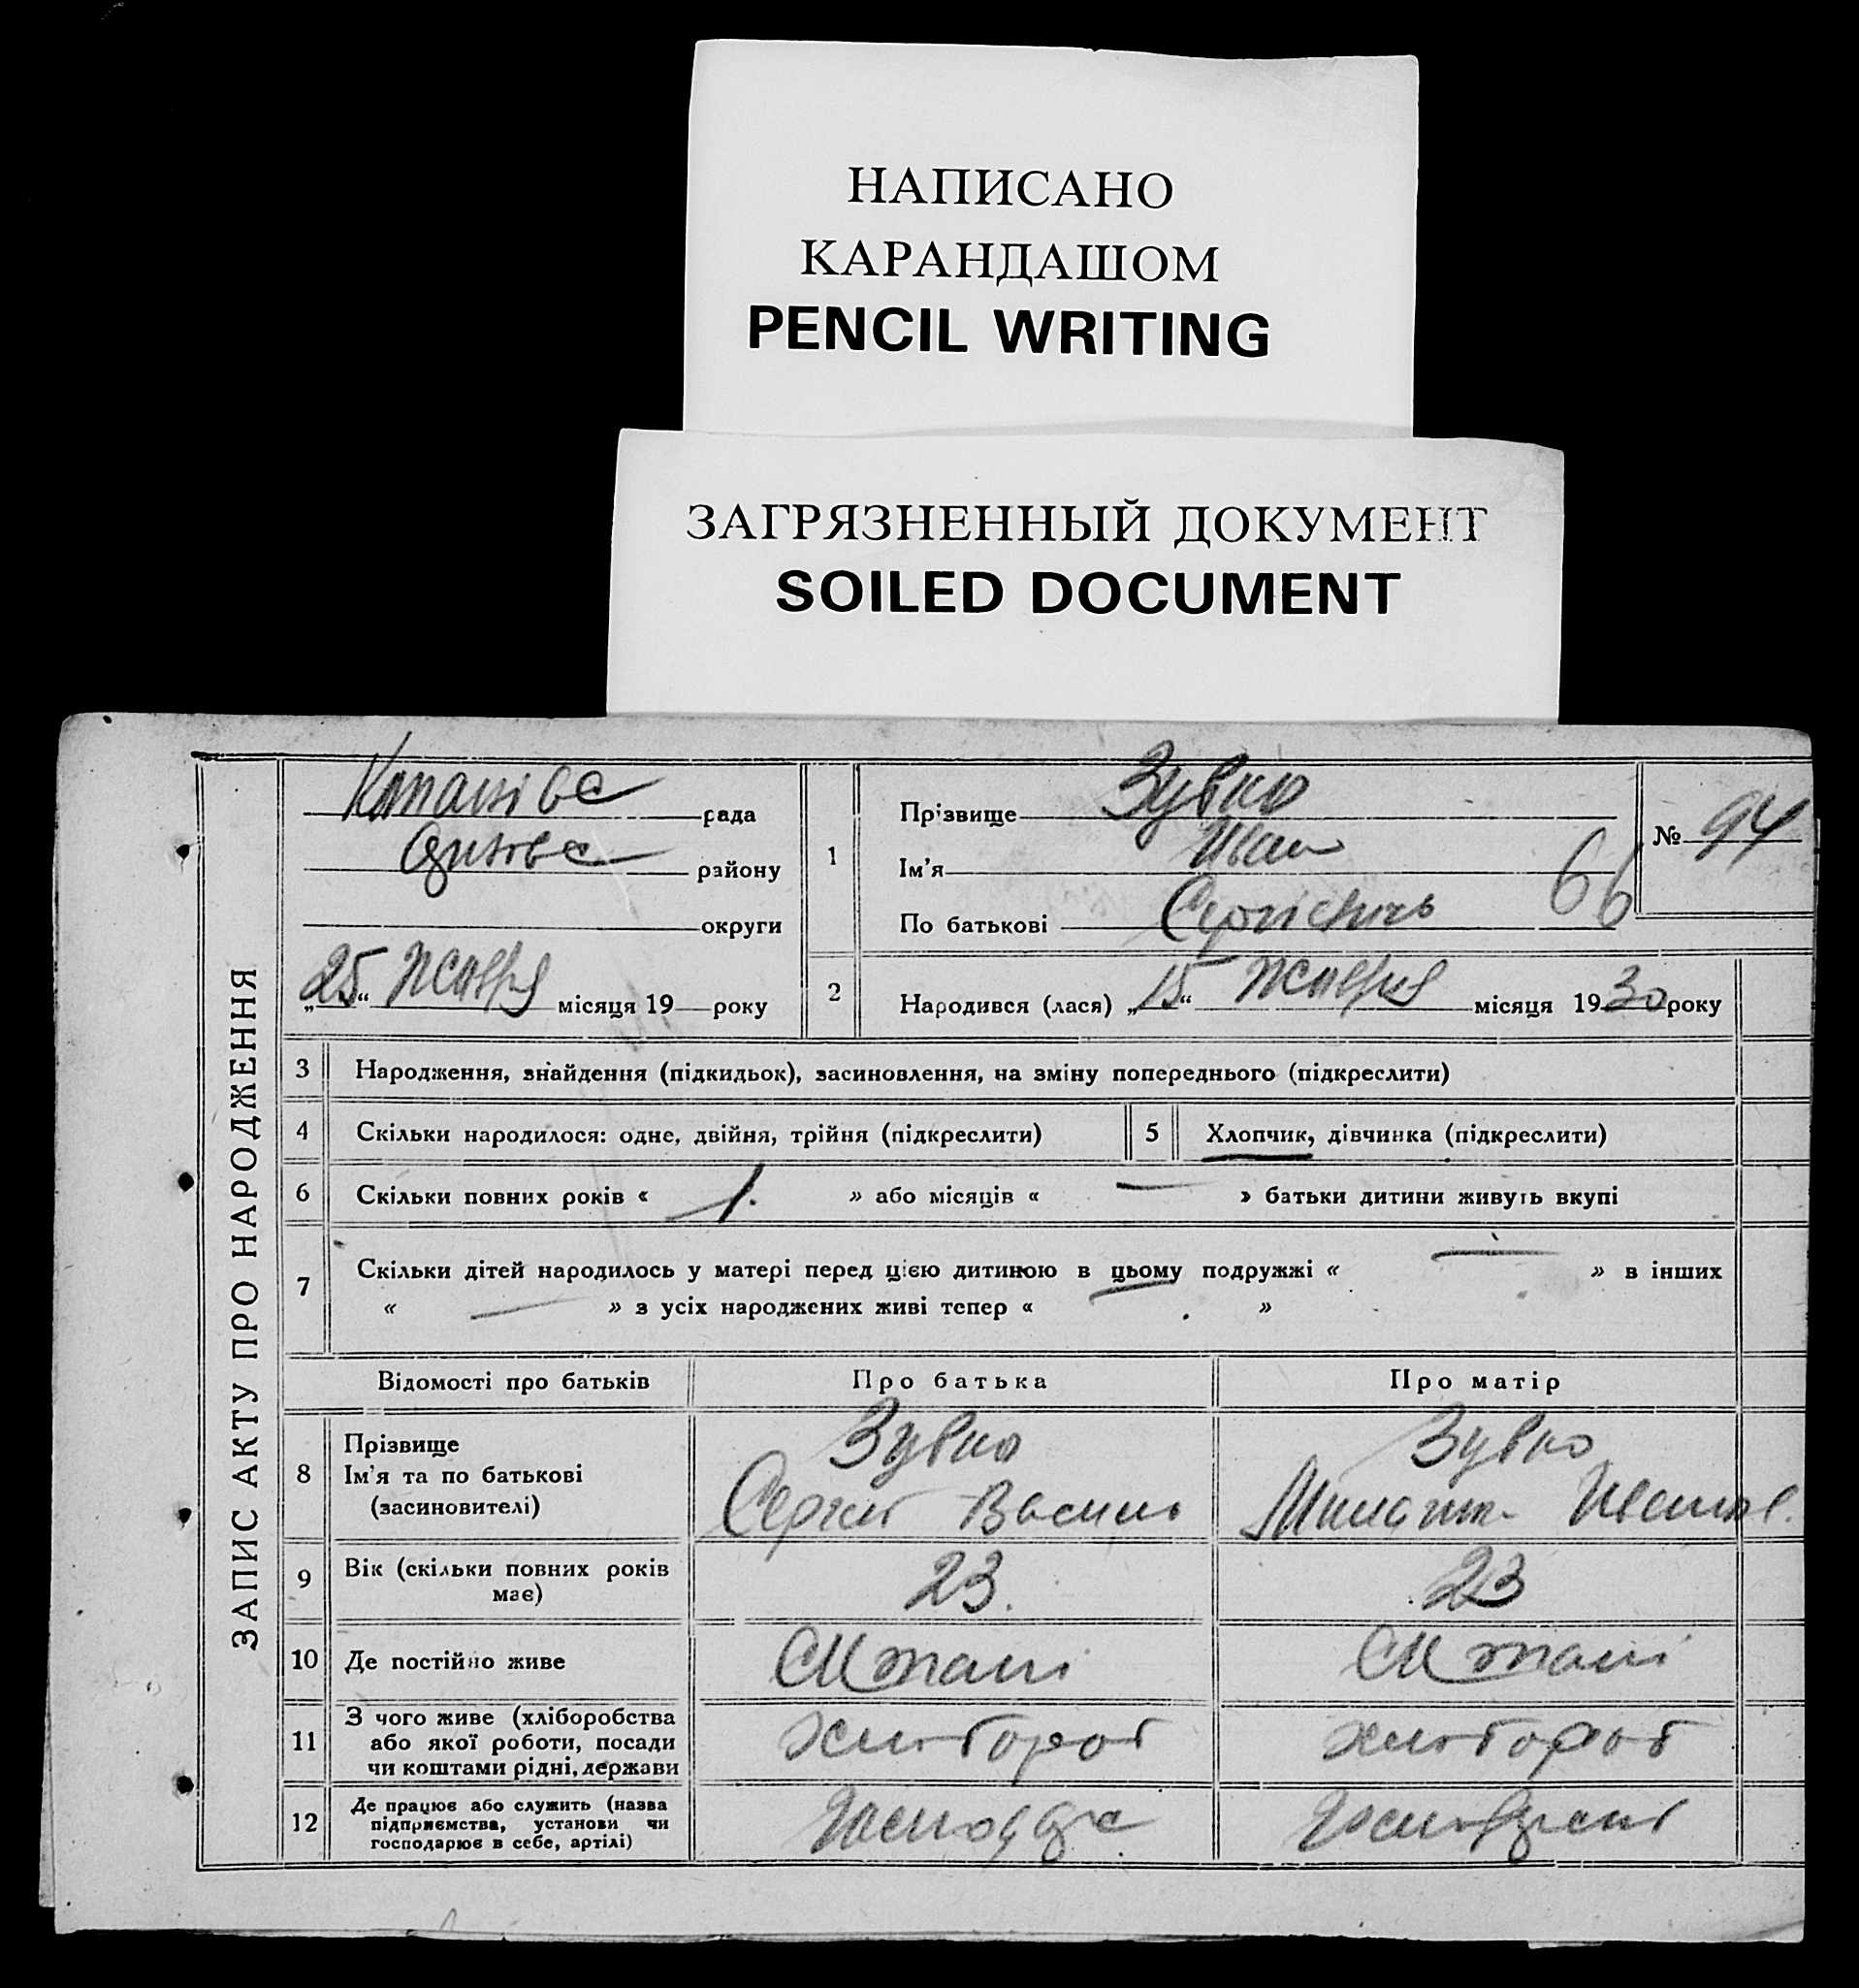 НАПИСАНО
КАРАНДАШОМ
PENCIL WRITING
ЗАГРЯЗНЕННЫЙ ДОКУМЕНТ
SOILED DOCUMENT
ЗАПИС АКТУ ПРО НАРОДЖЕННЯ
рада
району
округи
„25“ Жовтня місяця 19 року
1
Прізвище Зубко
Ім'я Иван
По батькові
66
№ 94
2
Народився (лася) „15“ Жовтня місяця 1930 року
3 Народження, знайдення (підкидьок), засиновлення, на зміну попереднього (підкреслити)
4 Скільки народилося: одне, двійня, трійня (підкреслити)
5 Хлопчик, дівчинка (підкреслити)
6 Скільки повних років « 1. » або місяців « — » батьки дитини живуть вкупі
7 Скільки дітей народилось у матері перед цією дитиною в цьому подружжі « — » в інших
« — » з усіх народжених живі тепер « »
Відомості про батьків Про батька Про матір
8 Прізвище
Ім'я та по батькові
(засиновителі)
Зубко
Сергій Василь
Зубко
9 Вік (скільки повних років
має)
23.
23
10 Де постійно живе
11 З чого живе (хліборобства
або якої роботи, посади
чи коштами рідні, держави
хлібороб
хлібороб
12 Де працює або служить (назва
підприємства, установи чи
господарює в себе, артілі)